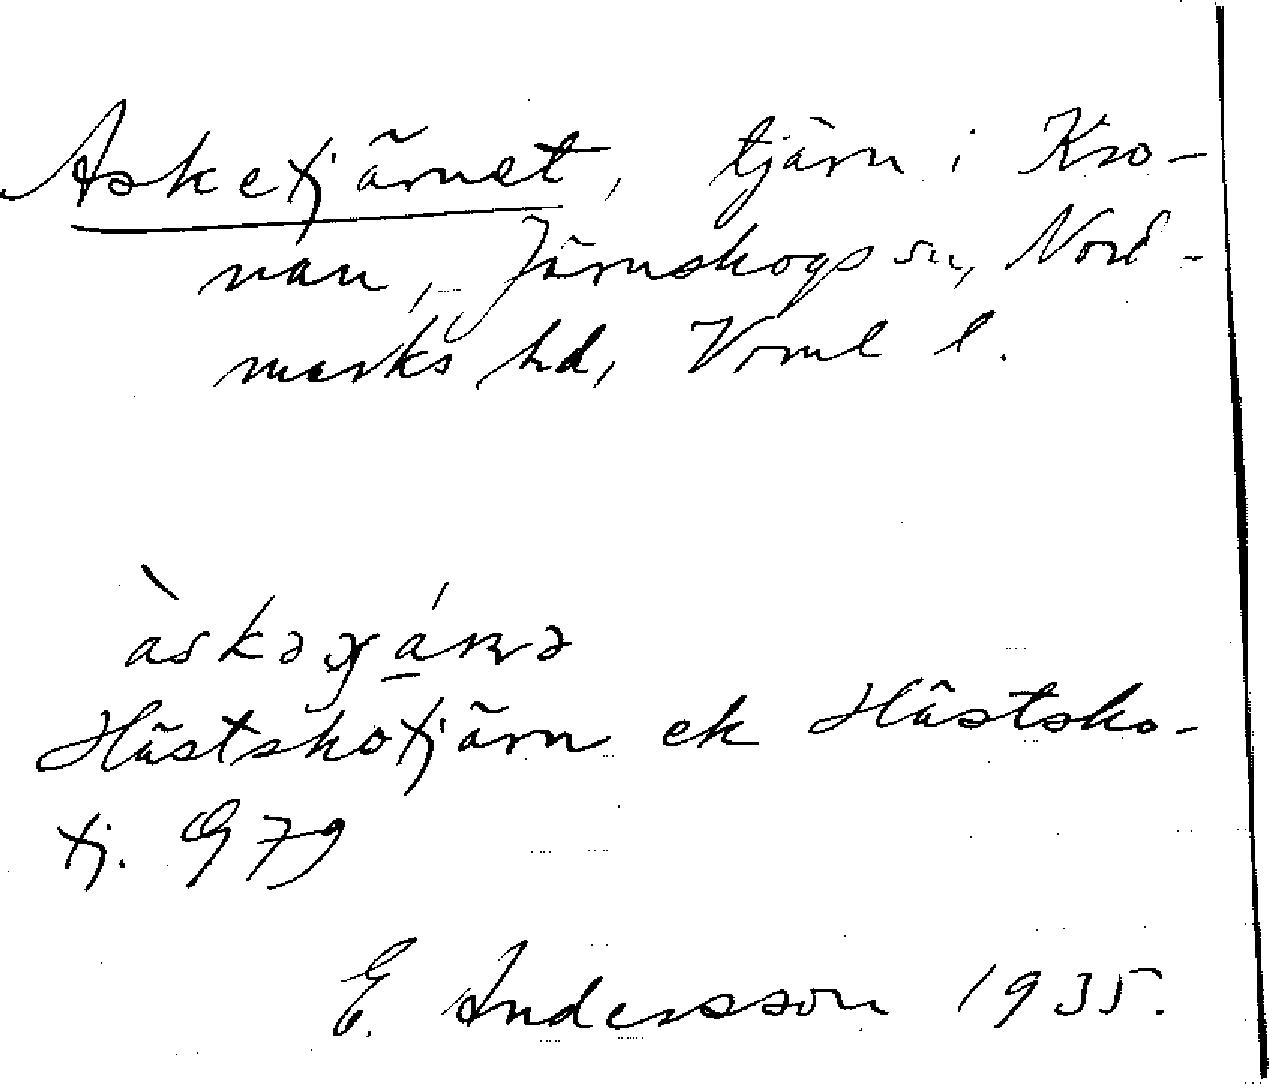 Asketjärnet, tjärn i Kro-
nan, Järnskogs sn, Nord-
marks hd, Vrml l.
Hästskotjärn ek Hästsko-
tj. G 79
E. Andersson 1935.